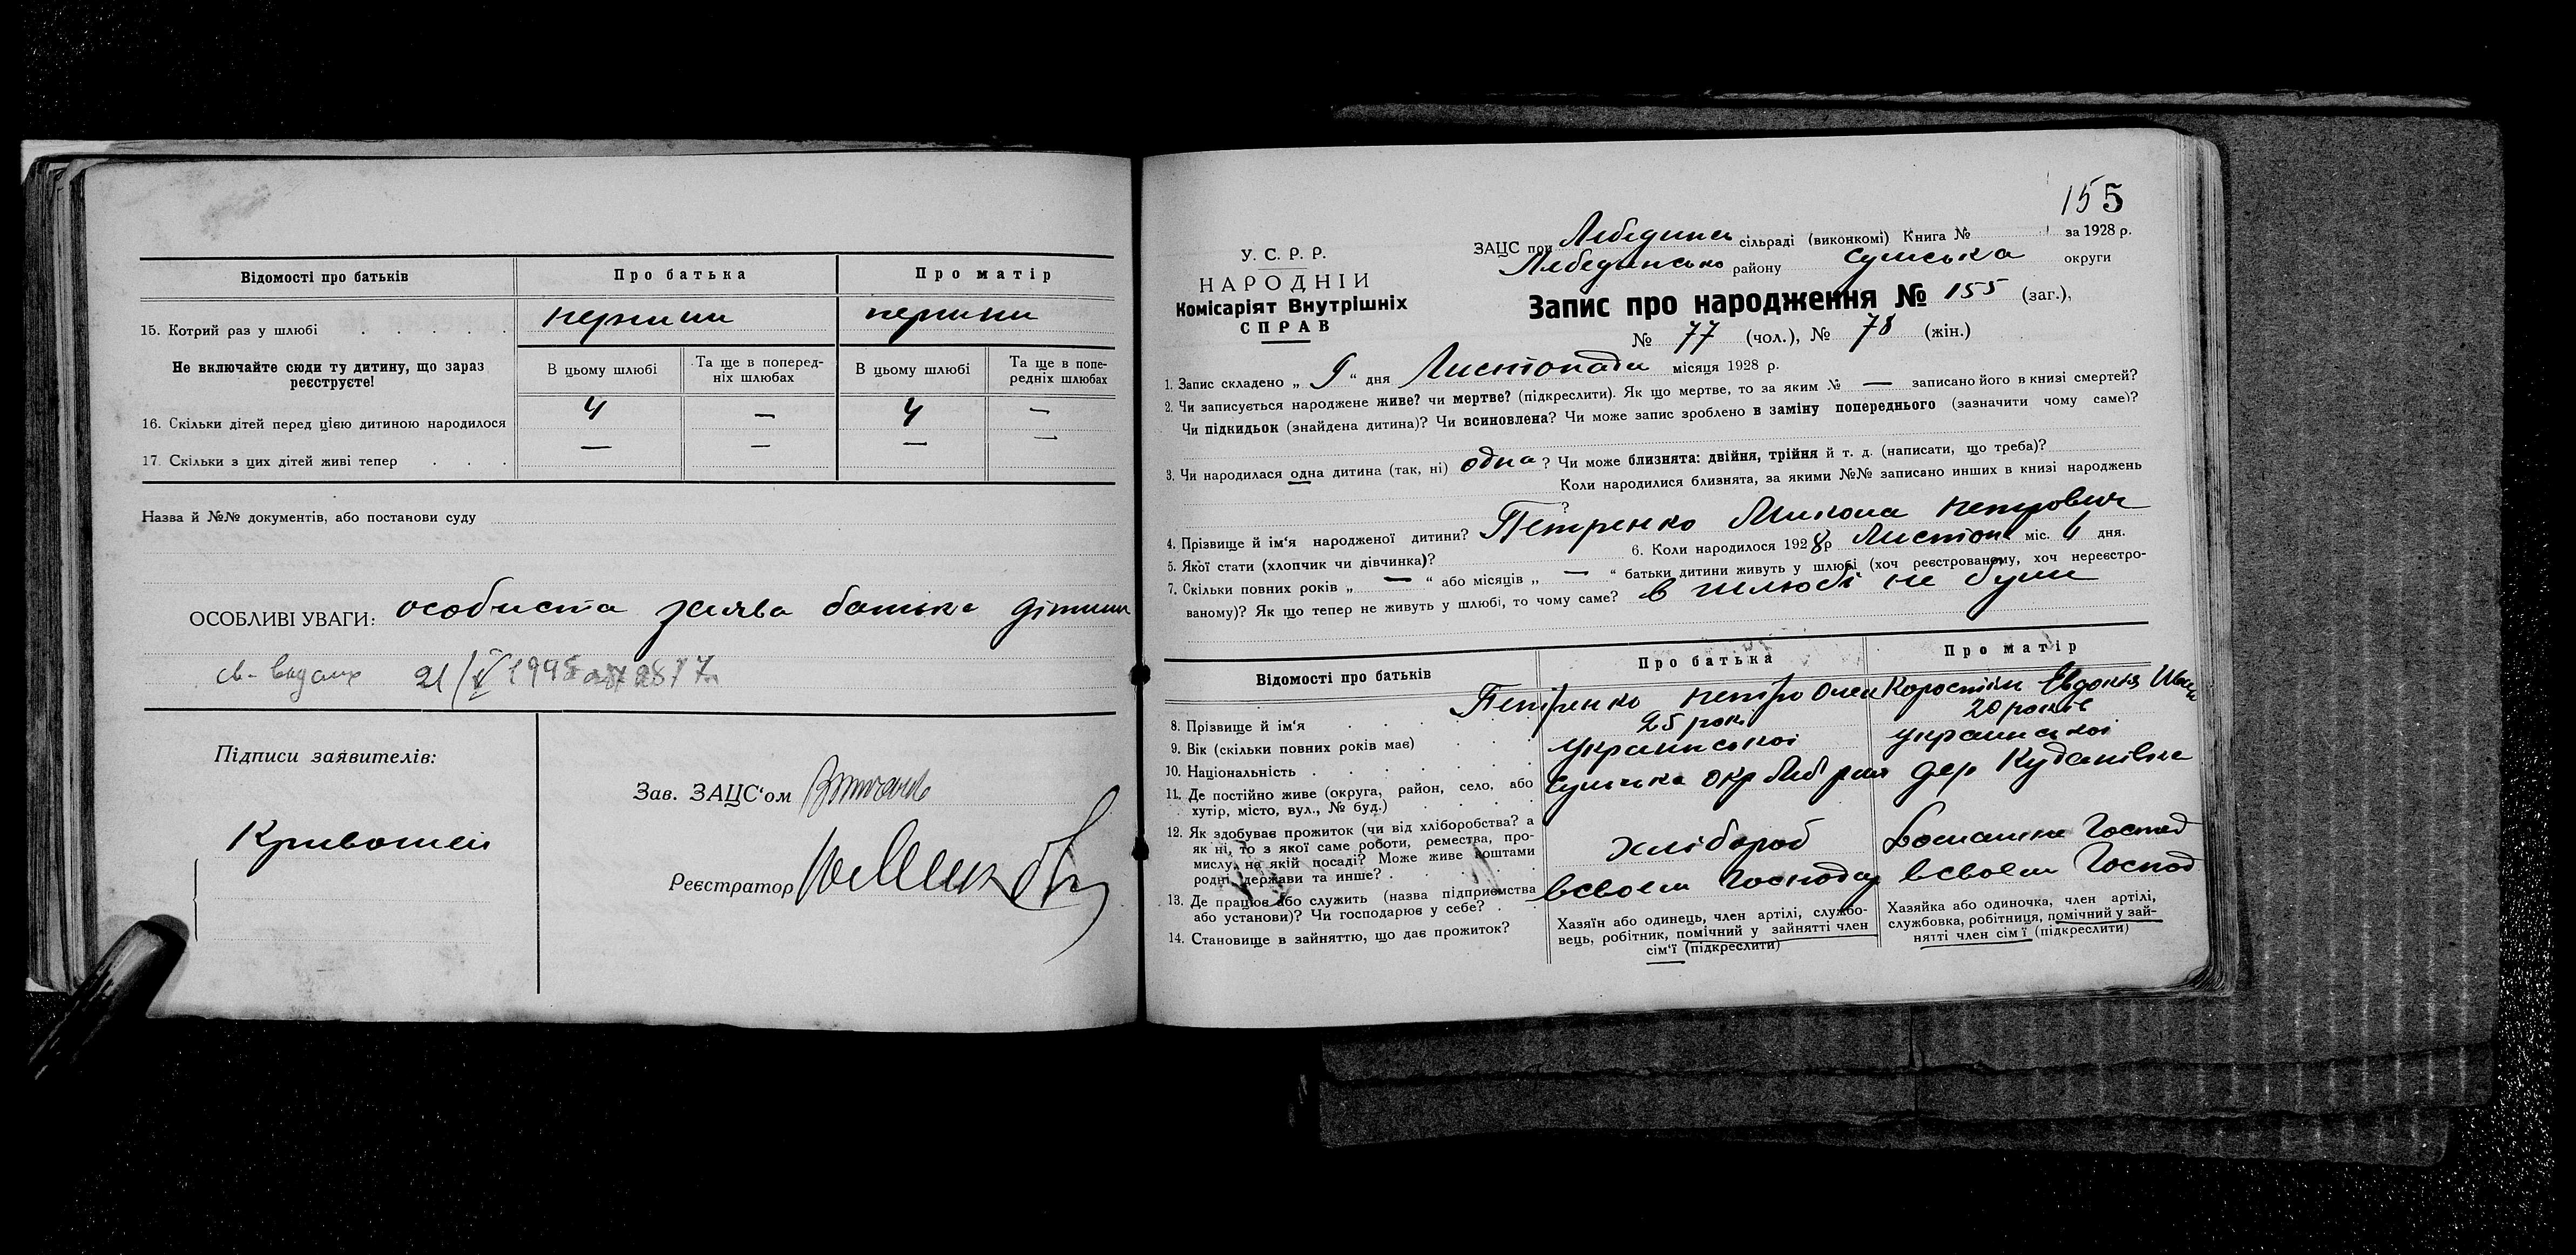 Відомості про батьків
Про батька
Про матір
15. Котрий раз у шлюбі
первши
первши
Не включайте сюди ту дитину, що зараз реєструєте!
В цьому шлюбі
Та ще в попередніх шлюбах
В цьому шлюбі
Та ще в попередніх шлюбах
16. Скільки дітей перед цією дитиною народилося
4
—
4
—
17. Скільки з цих дітей живі тепер
—
—
—
—
Назва й №№ документів, або постанови суду
ОСОБЛИВІ УВАГИ: особиста заява батька дитини
21/V 1995
Підписи заявителів:
Кривошеи
Зав. ЗАЦС'ом
Реєстратор
155
У. С. Р. Р.
НАРОДНІЙ
Комісаріят Внутрішніх
СПРАВ
ЗАЦС при Лебединск сільраді (виконкомі) Книга № за 1928 р.
Лебединсько району Сумська округи
Запис про народження № 155 (заг.),
№ 77 (чол.), № 78 (жін.)
1. Запис складено „ 9 “ дня Листопада місяця 1928 р.
2. Чи записується народжене живе? чи мертве? (підкреслити). Як що мертве, то за яким № — записано його в книзі смертей?
Чи підкидьок (знайдена дитина)? Чи всиновлена? Чи може запис зроблено в заміну попереднього (зазначити чому саме)?
3. Чи народилася одна дитина (так, ні) одна ? Чи може близнята: двійня, трійня й т. д. (написати, що треба)?
Коли народилися близнята, за якими №№ записано инших в книзі народжень
?
4. Прізвище й ім'я народженої дитини? Петренко Микола петрович
5. Якої стати (хлопчик чи дівчинка)? 6. Коли народилося 1928 р Листоп міс. 6 дня.
7. Скільки повних років „ — “ або місяців „ — “ батьки дитини живуть у шлюбі (хоч реєстрованому, хоч нереєстро-
ваному)? Як що тепер не живуть у шлюбі, то чому саме? в шлюбі не були
Відомості про батьків
Про батька
Про матір
8. Прізвище й ім'я
Петренко петро Олек
Коростіль Евдокія Іван
9. Вік (скільки повних років має)
25 рок
20 років
10. Національність
украинської
украинської
11. Де постійно живе (округа, район, село, або
хутір, місто, вул., № буд.)
Сумська окр Леб рай дер Куданівка
12. Як здобуває прожиток (чи від хліборобства? а
як ні, то з якої саме роботи, ремества, про-
мислу, на якій посаді? Може живе коштами
родні, держави та инше?
хлібороб
Домашне Господ
13. Де працює або служить (назва підприємства
або установи)? Чи господарює у себе?
всвоем Господар
всвоем Господ
14. Становище в зайняттю, що дає прожиток?
Хазяїн або одинець, член артілі, службо-
вець, робітник, помічний у зайнятті член
сім'ї (підкреслити)
Хазяйка або одиночка, член артілі,
службовка, робітниця, помічний у зай-
нятті член сім'ї (підкреслити)